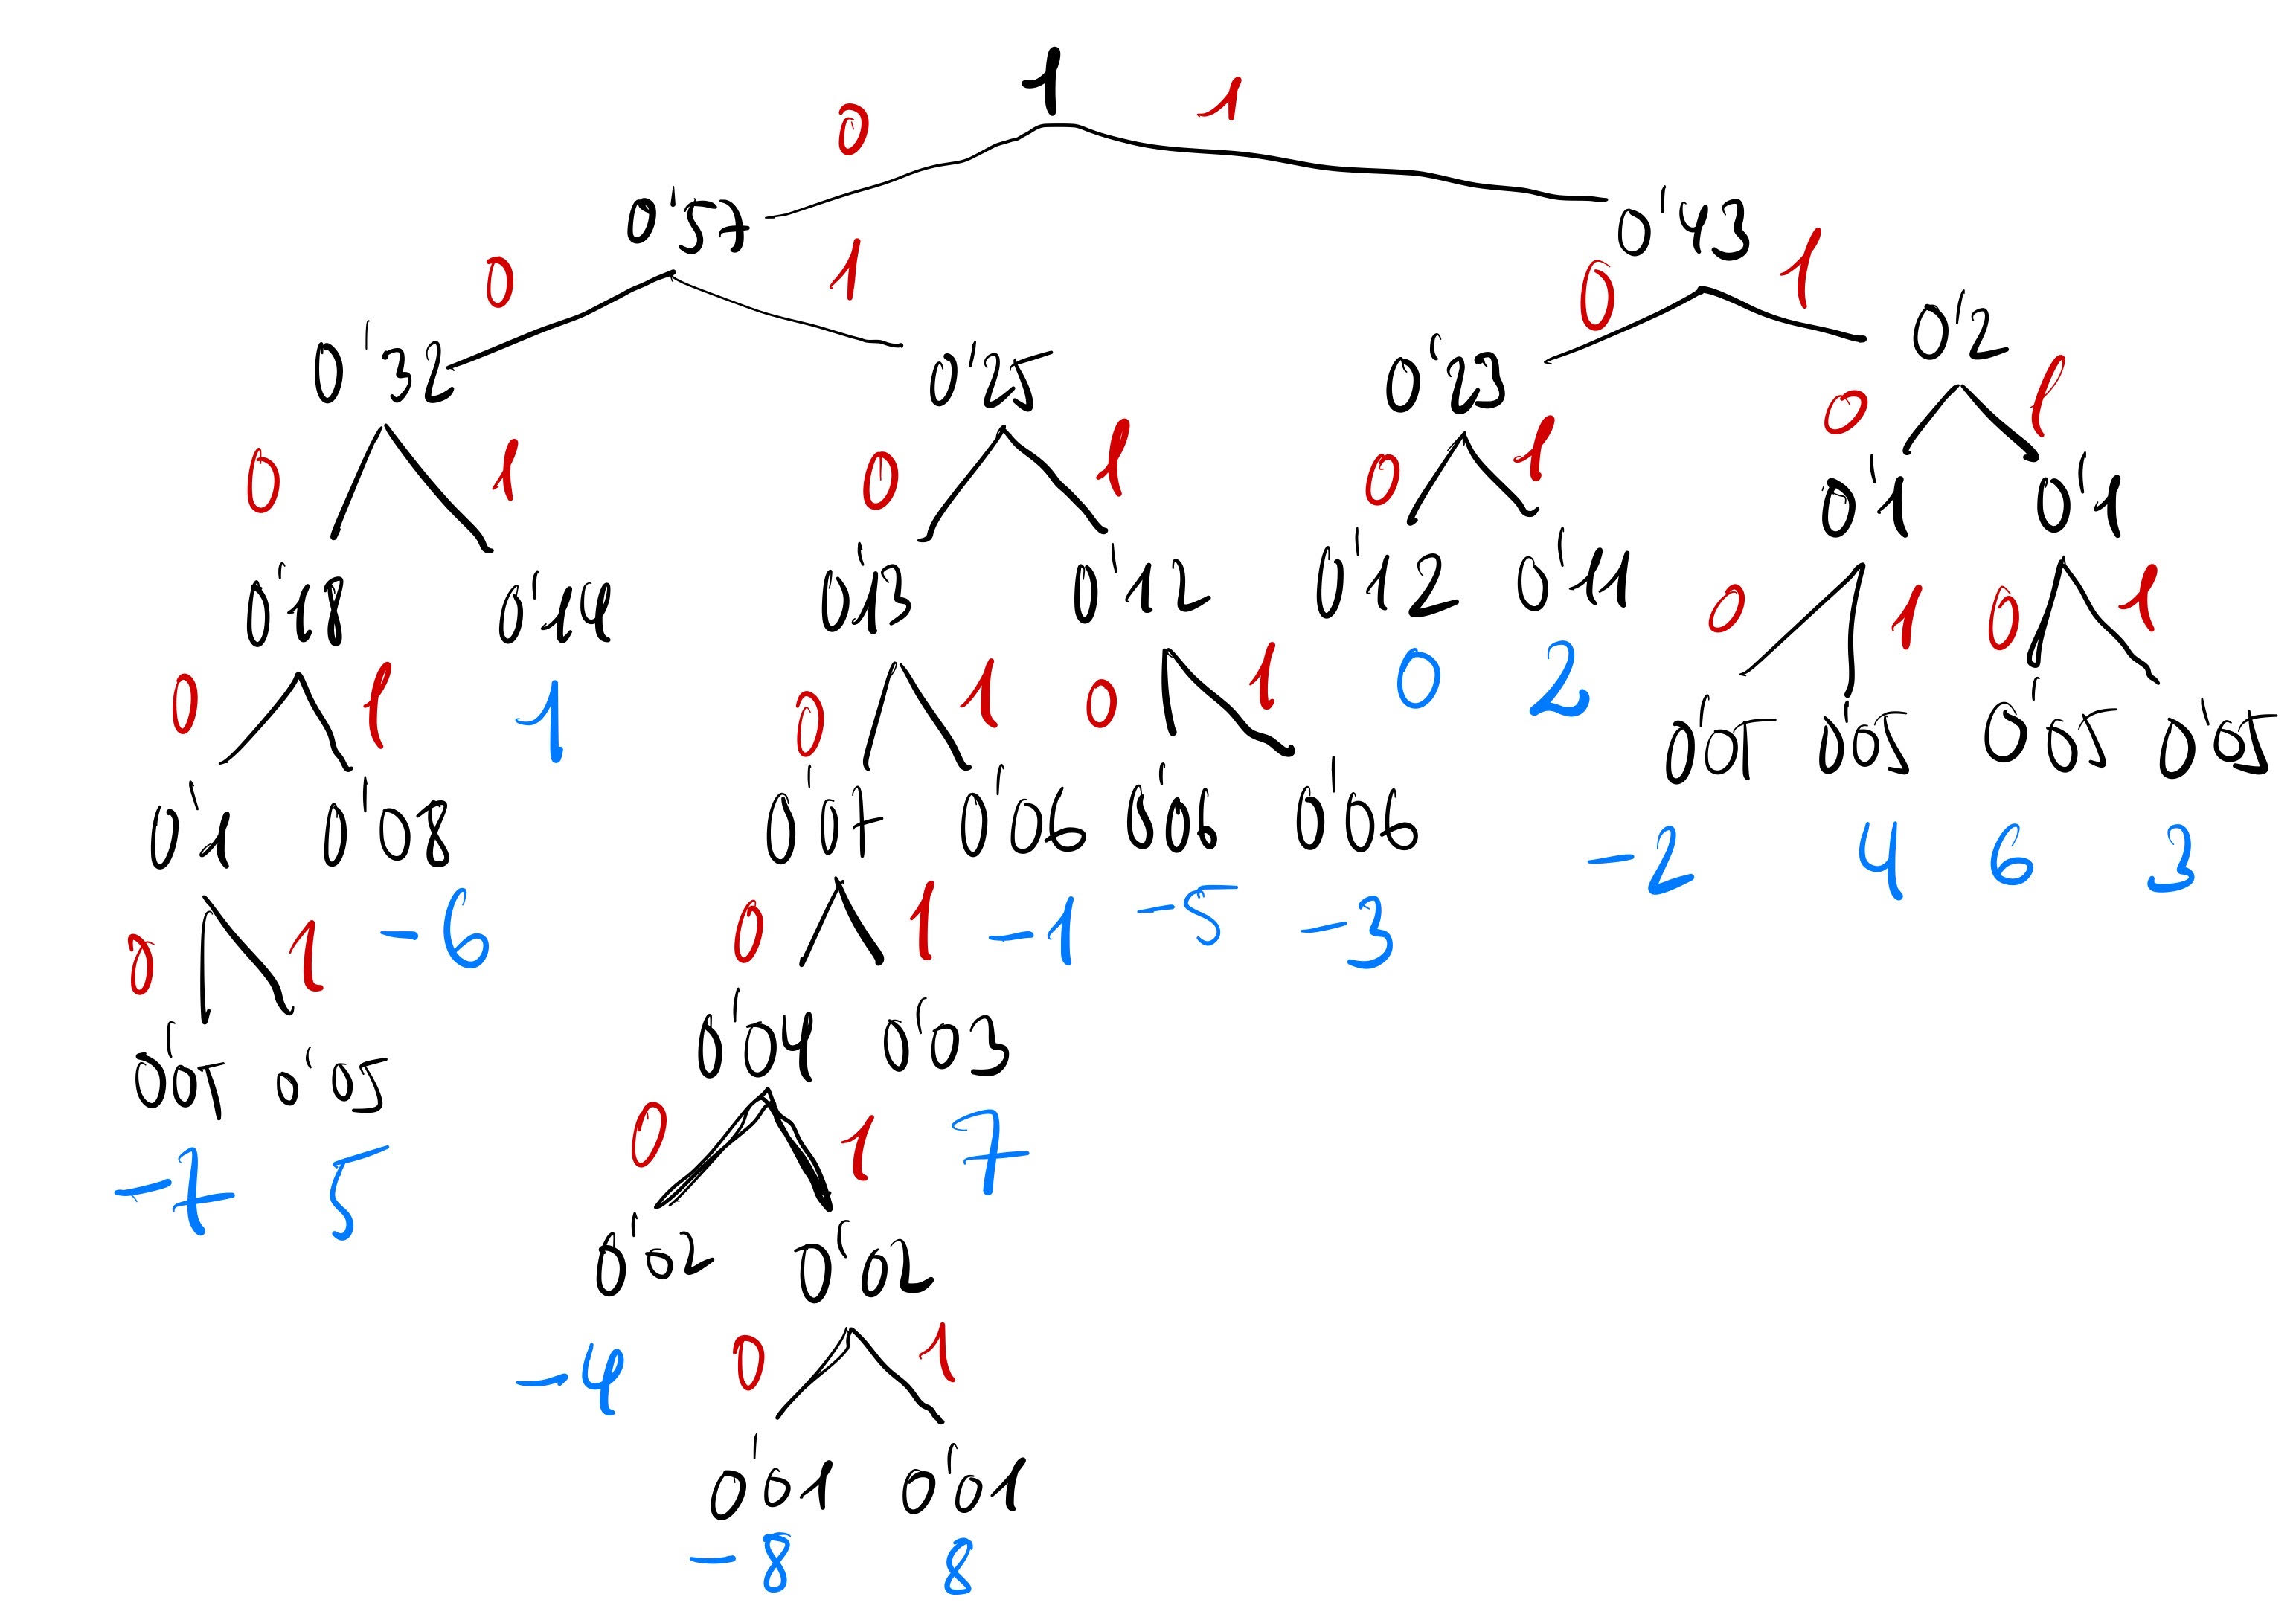 1
0 1
0'57 0'43
0 1 0 1
0'32 0'25 0'23 0'2
0 1 0 1 0 1 0 1
0'18 0'14 0'13 0'12 0'12 0'11 0'1 0'1
0 1 1 0 1 0 1 0 2 0 1 0 1
0'1 0'08 0'07 0'06 0'06 0'06 0'05 0'05 0'05 0'05
0 1 -6 0 1 -1 -5 -3 -2 4 6 3
0'05 0'05 0'04 0'03
-7 5 0 1 7
0'02 0'02
-4 0 1
0'01 0'01
-8 8